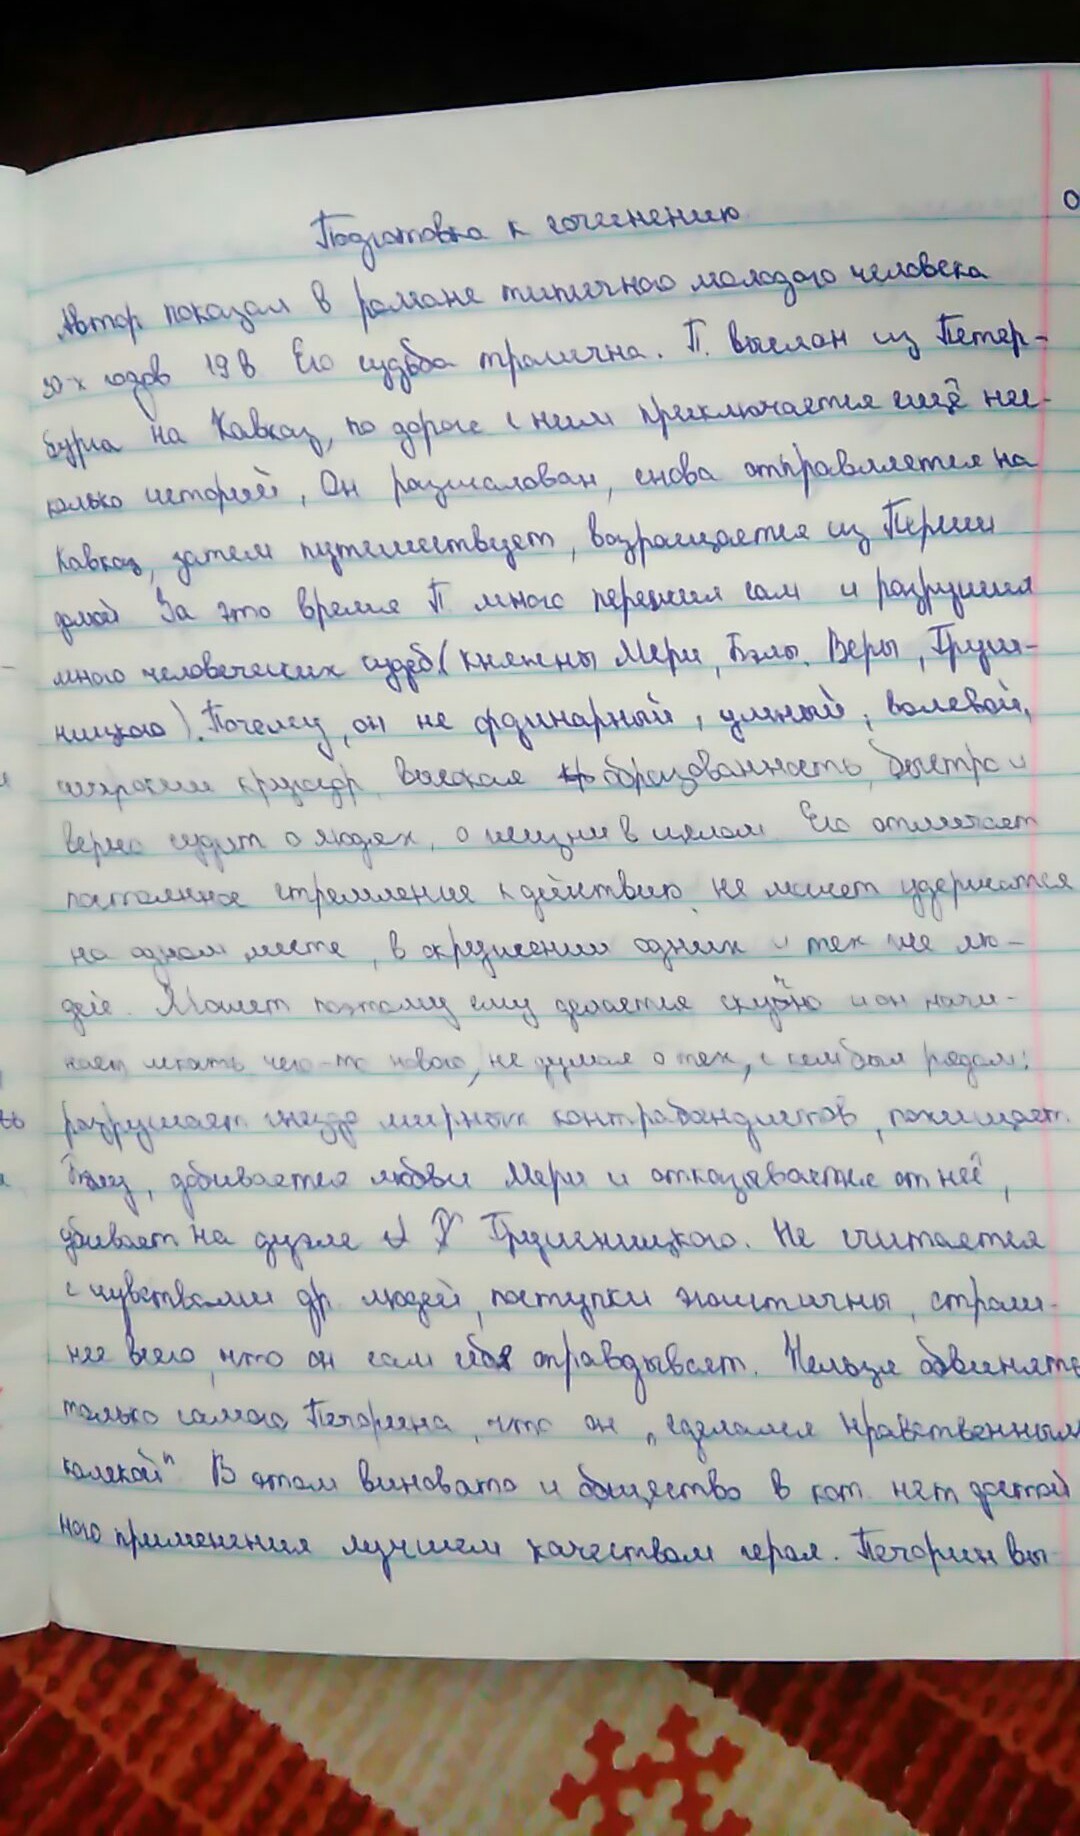 Подготовка к сочинению
Автор показал в романе типичного молодого человека
30-х годов 19 в Его судьба трагична. П. выслан из Петер-
бурга на Кавказ, по дороге с ним приключается ещё нес-
колько историй, Он разжалован, снова отправляется на
Кавказ, затем путешествует, возращается из Персии
домой За это время П. много пережил сам и разрушил
много человеческих судеб (княжны Мери, Бэлы, Веры, Груш-
ницкого). Почему, он не ординарный, умный, волевой,
широкий кругозор, высокая образованность, быстро и
верно судит о людях, о жизни в целом Его отличает
постоянное стремление к действию, не может удержатся
на одном месте, в окружении одних и тех же лю-
дей. Может поэтому ему делается скучно и он начи-
нает искать чего-то нового, не думая о тех, с кем был рядом:
разрушает гнездо мирных контрабандистов, похищает
Бэлу, добивается любви Мери и отказывается от неё,
убивает на дуэле Грушницкого. Не считается
с чувствами др. людей, поступки эгоистичны, страш-
нее всего, что он сам себя оправдывает. Нельзя обвинять
только самого Печорина, что он „сделался нравственным
калекой" В этом виновато и общество в кот. нет достой
ного применения лучшем качествам героя. Печорин вы-